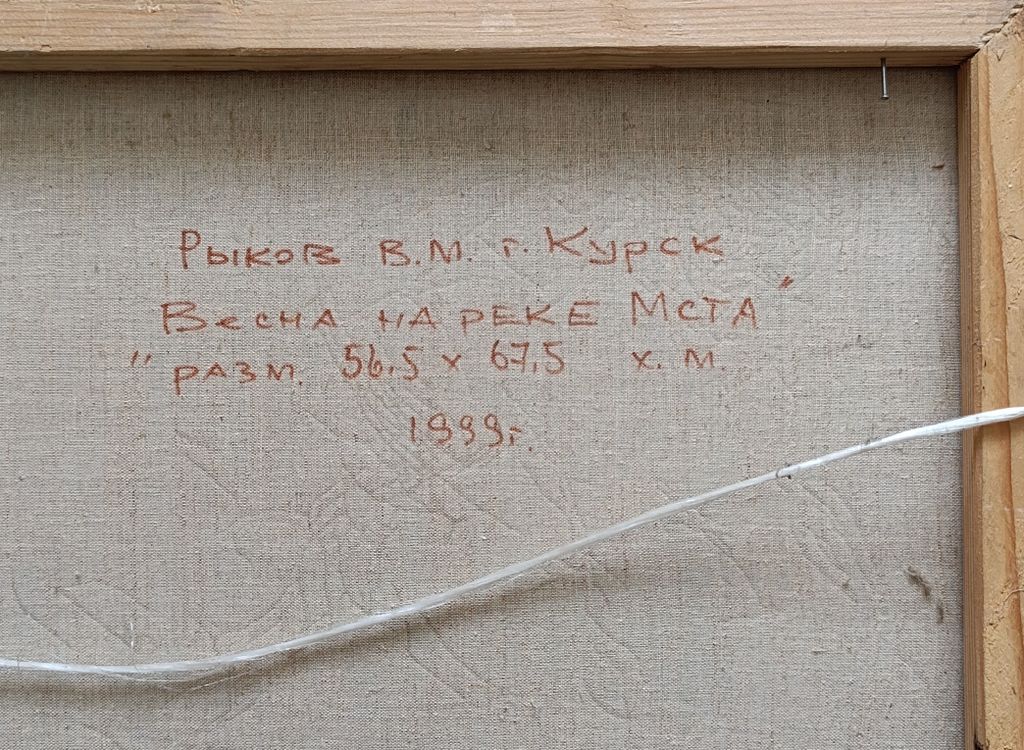 Рыков В.М. г. Курск
Весна на реке Мста"
" разм. 56,5 х 67,5 х. м.
1999г.